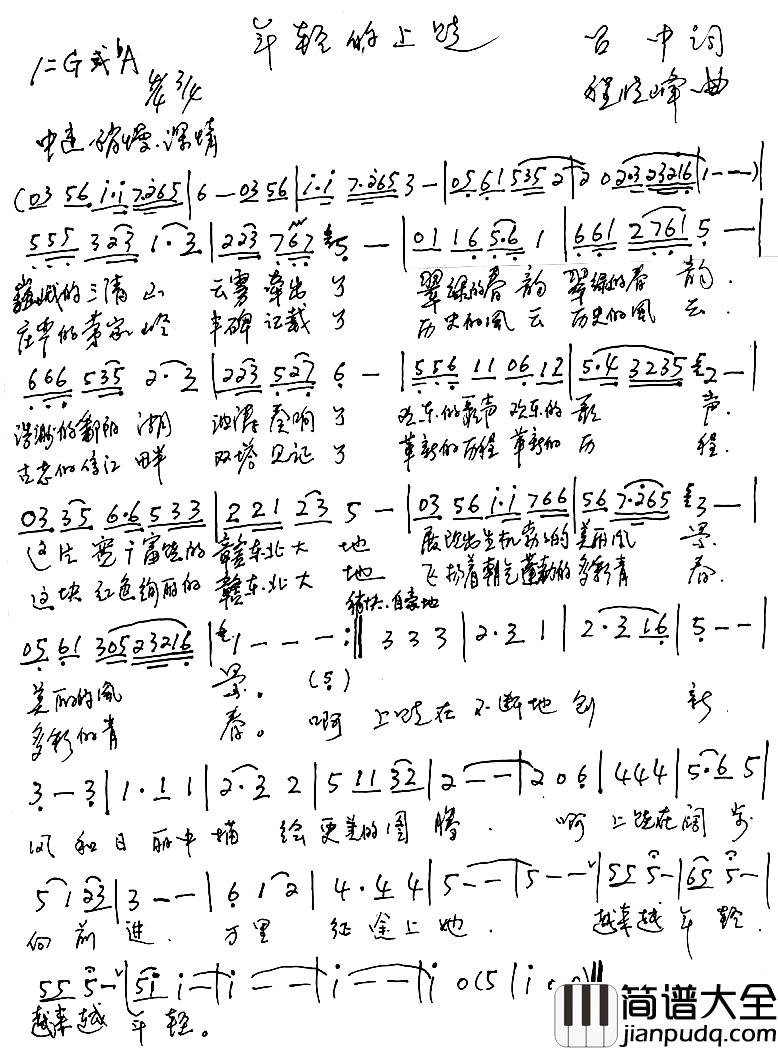 年轻的上饶
吕中词
1=G或♭A
4/4 3/4
程晓峰曲
中速 稍慢.深情
(03 56 i·i 7·265|6 - 03 56|i·i 7·265 3 -|05 61 535 2|2 0 2·3 23216|1 - -)|
555 323 1·3|223 767 5 -|01 16 5·6 1|661 2761 5 -|
巍峨的三清山 云雾牵出了 翠绿的春韵 翠绿的春韵.
庄严的茅家岭 丰碑记载了 历史的风云 历史的风云.
666 535 2·3|223 527 6 -|556 11 06 12|5·4 3235 2 -|
浩渺的鄱阳湖 波涛奏响了 欢乐的歌声 欢乐的歌声.
古老的信江畔 双塔见证了 革新的历程 革新的历程.
03 35 6·6 533|221 23 5 -|03 56 i·i 766|56 7·265 3 -|
这片宽广富饶的赣东北大地 展现出生机勃勃的美丽风景.
这块红色绚丽的赣东北大地 飞扬着朝气蓬勃的多彩青春.
稍快.自豪地
05 61 30523216|1 - - -:‖ 3 3 3|2·3 1|2·3 16|5 - -|
美丽的风景。 (5)
多彩的青春。 啊 上饶在不断地创新.
3 - 3|1·1 1|2·3 2|5 11 32|2 - -|2 0 6|4 4 4|5·6 5|
风和日丽中描绘更美的图腾. 啊 上饶在阔步
5 1 23|3 - -|6 1 2|4·4 4|5 - -|5 - -|55 5 -|65 5 -|
向前进. 万里征途上她. 越来越年轻.
55 5 -|5i i -|i - -|i - -|i 0 (5|i 0 0)‖
越来越年轻。
简谱大全
jianpudq.com